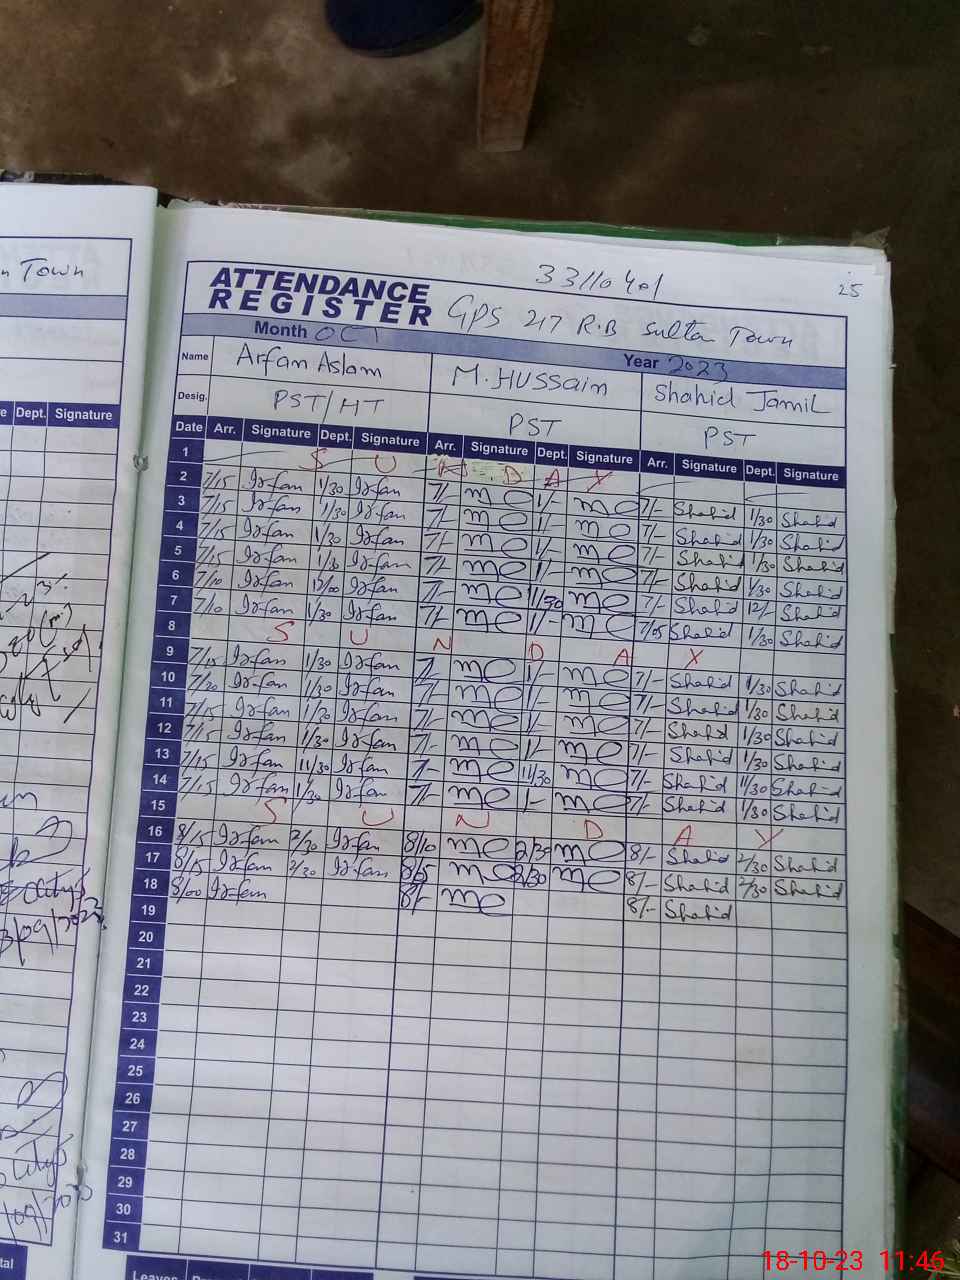 n Town
33110401
25
ATTENDANCE REGISTER GPS 217 R.B Sultan Town
Month OCT Year 2023
Name Arfan Aslam M. HUSSain Shahid Jamil
Desig. PST/HT PST PST
Dept. Signature
Date Arr. Signature Dept. Signature Arr. Signature Dept. Signature Arr. Signature Dept. Signature
1 S U N D A Y
2 7/15 Irfan 1/30 Irfan 7/- 1/- 7/- Shahid 1/30 Shahid
3 7/15 Irfan 1/30 Irfan 7/- 1/- 7/- Shahid 1/30 Shahid
4 7/15 Irfan 1/30 Irfan 7/- 1/- 7/- Shahid 1/30 Shahid
5 7/15 Irfan 1/30 Irfan 7/- 1/- 7/- Shahid 1/30 Shahid
6 7/10 Irfan 12/00 Irfan 7/- 11/30 7/- Shahid 12/- Shahid
7 7/10 Irfan 1/30 Irfan 7/- 1/- 7/05 Shahid 1/30 Shahid
8 S U N D A Y
9 7/15 Irfan 1/30 Irfan 7/- 1/- 7/- Shahid 1/30 Shahid
10 7/20 Irfan 1/30 Irfan 7/- 1/- 7/- Shahid 1/30 Shahid
11 7/15 Irfan 1/30 Irfan 7/- 1/- 7/- Shahid 1/30 Shahid
12 7/15 Irfan 1/30 Irfan 7/- 1/- 7/- Shahid 1/30 Shahid
13 7/15 Irfan 11/30 Irfan 7/- 11/30 7/- Shahid 11/30 Shahid
14 7/15 Irfan 1/30 Irfan 7/- 1- 7/- Shahid 1/30 Shahid
15 S U N D A Y
16 8/15 Irfan 2/30 Irfan 8/10 2/30 8/- Shahid 2/30 Shahid
17 8/15 Irfan 2/30 Irfan 8/5 2/30 8/- Shahid 2/30 Shahid
18 8/00 Irfan 8/- 8/- Shahid
19
20
21
22
23
24
25
26
27
28
29
30
31
Leaves
18-10-23 11:46